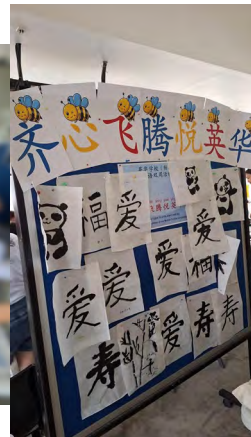 齐心飞腾悦英华
福 爱
爱
爱 爱 爱 福
寿 爱 寿